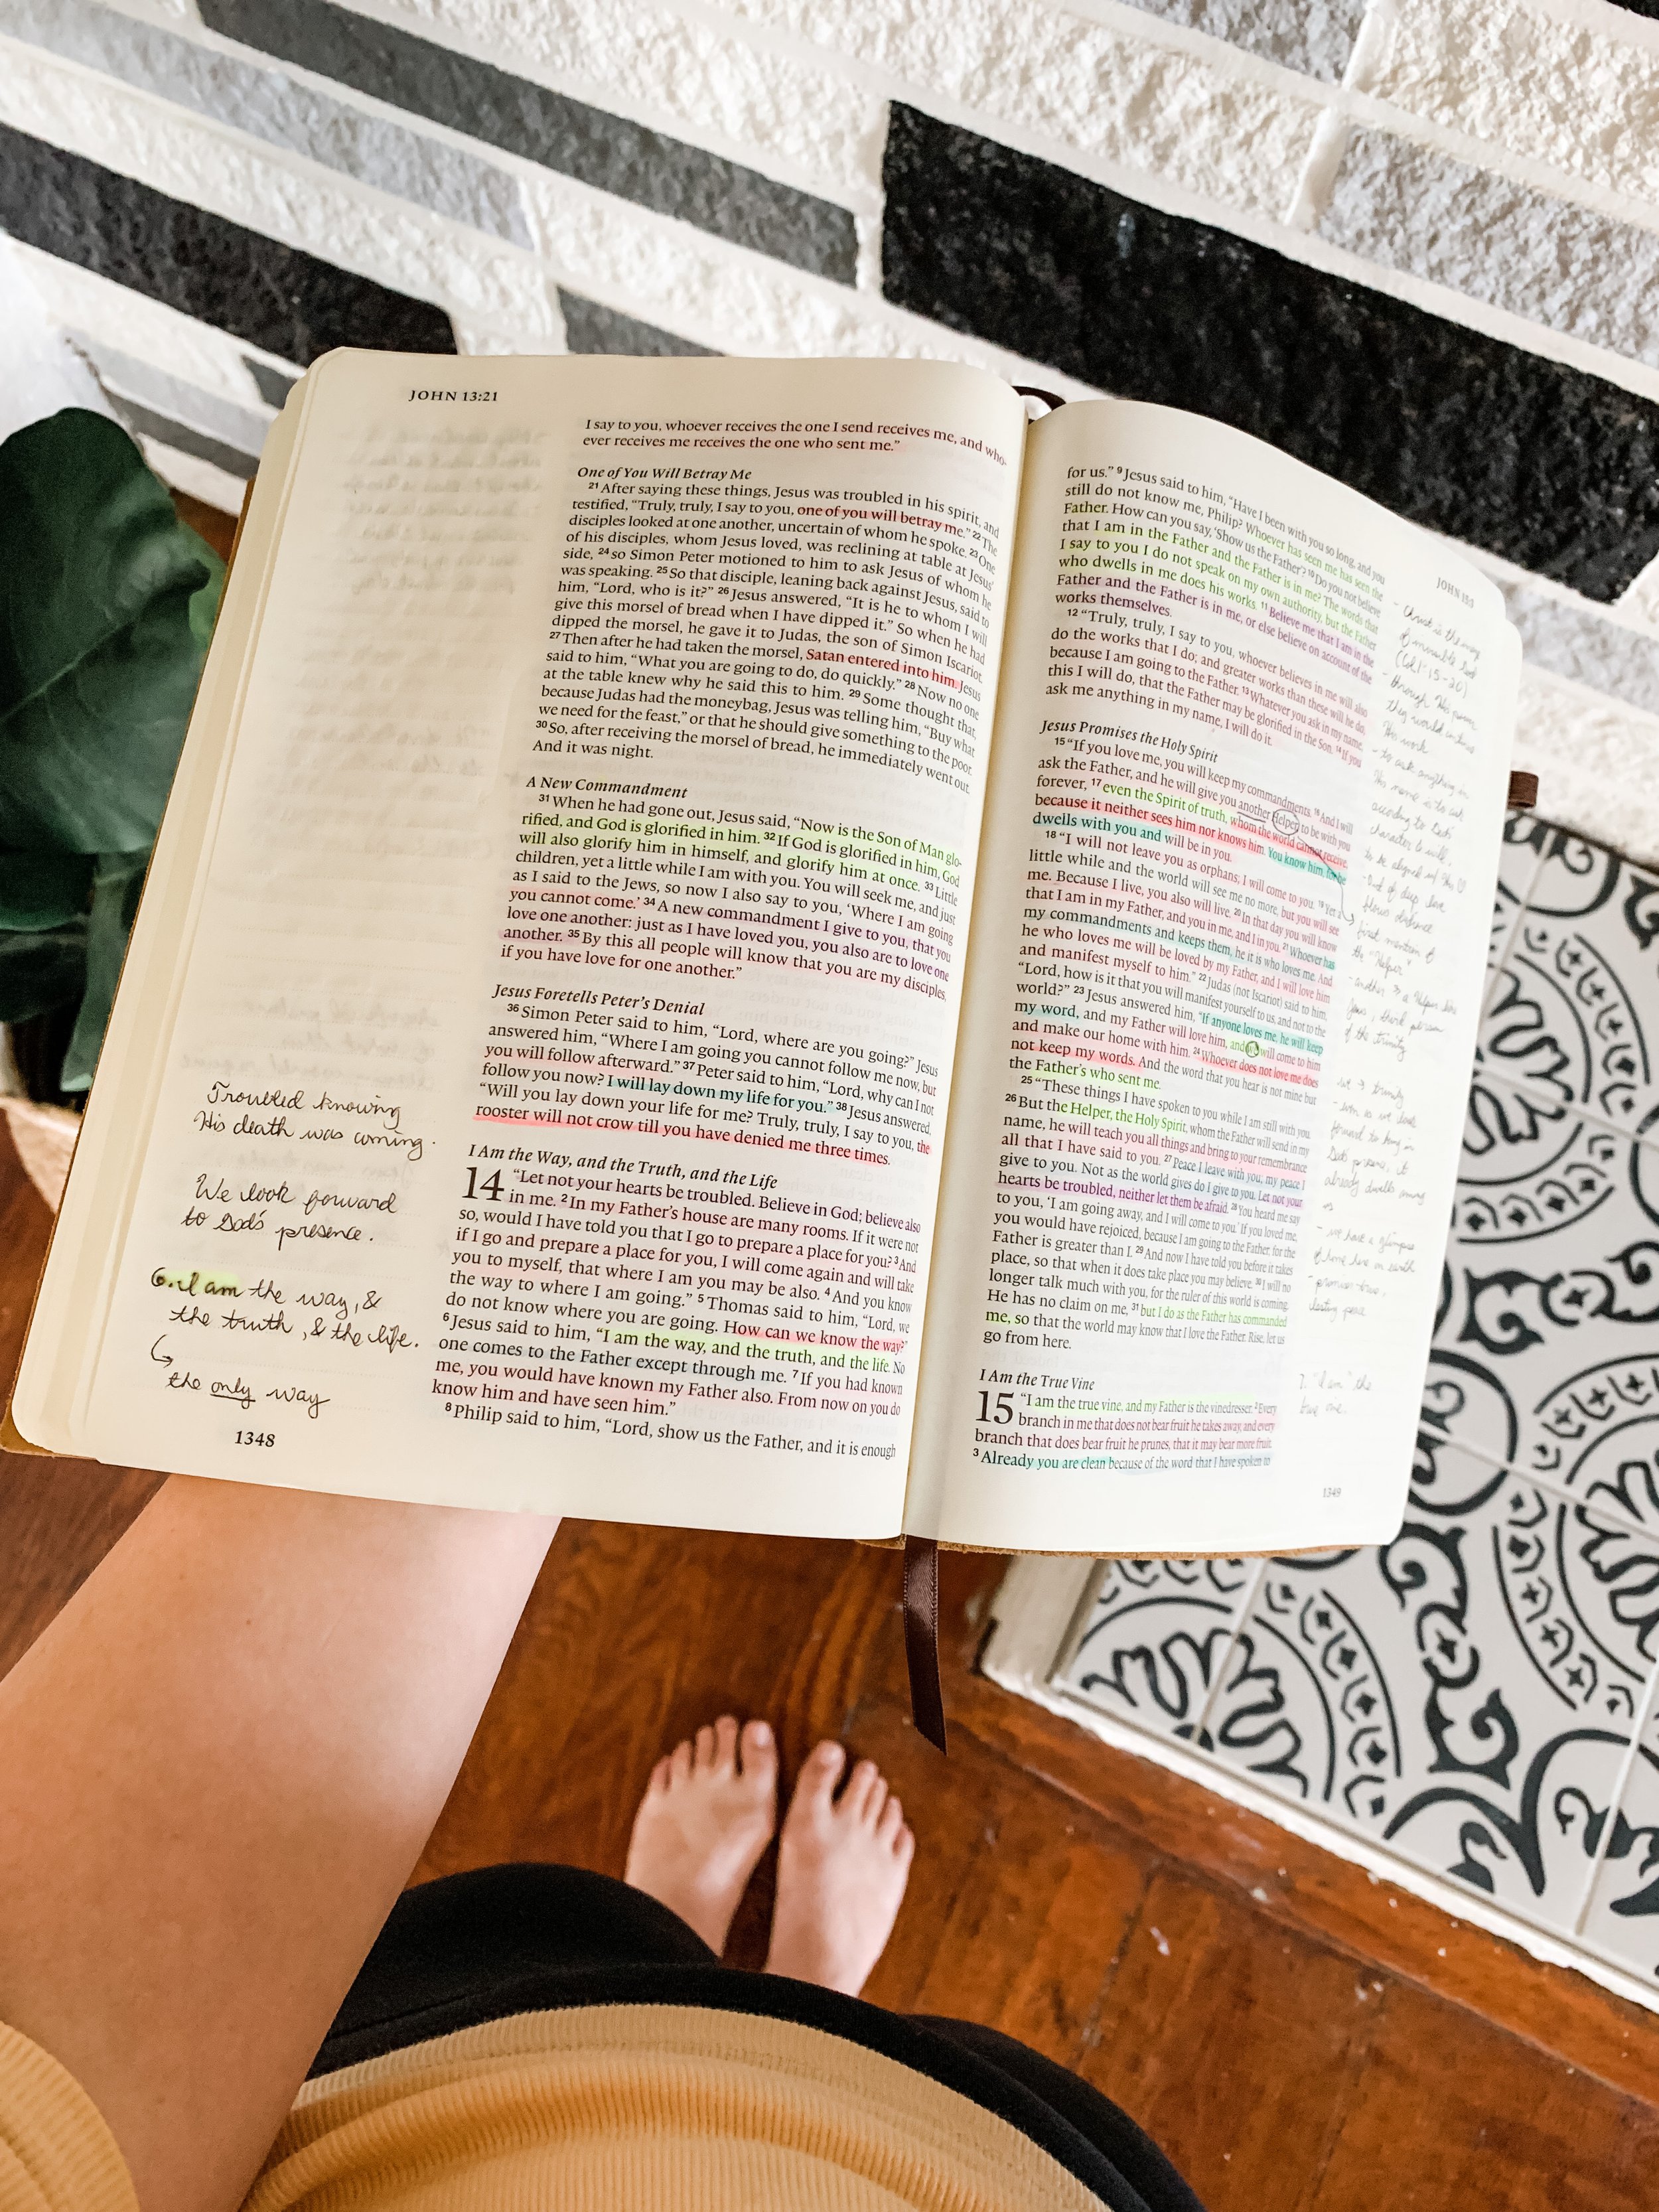 JOHN 13:21
I say to you, whoever receives the one I send receives me, and who-
ever receives me receives the one who sent me.”
One of You Will Betray Me
21 After saying these things, Jesus was troubled in his spirit, and
testified, “Truly, truly, I say to you, one of you will betray me.” 22 The
disciples looked at one another, uncertain of whom he spoke. 23 One
of his disciples, whom Jesus loved, was reclining at table at Jesus’
side, 24 so Simon Peter motioned to him to ask Jesus of whom he
was speaking. 25 So that disciple, leaning back against Jesus, said to
him, “Lord, who is it?” 26 Jesus answered, “It is he to whom I will
give this morsel of bread when I have dipped it.” So when he had
dipped the morsel, he gave it to Judas, the son of Simon Iscariot.
27 Then after he had taken the morsel, Satan entered into him. Jesus
said to him, “What you are going to do, do quickly.” 28 Now no one
at the table knew why he said this to him. 29 Some thought that,
because Judas had the moneybag, Jesus was telling him, “Buy what
we need for the feast,” or that he should give something to the poor.
30 So, after receiving the morsel of bread, he immediately went out.
And it was night.
A New Commandment
31 When he had gone out, Jesus said, “Now is the Son of Man glo-
rified, and God is glorified in him. 32 If God is glorified in him, God
will also glorify him in himself, and glorify him at once. 33 Little
children, yet a little while I am with you. You will seek me, and just
as I said to the Jews, so now I also say to you, ‘Where I am going
you cannot come.’ 34 A new commandment I give to you, that you
love one another: just as I have loved you, you also are to love one
another. 35 By this all people will know that you are my disciples,
if you have love for one another.”
Jesus Foretells Peter’s Denial
36 Simon Peter said to him, “Lord, where are you going?” Jesus
answered him, “Where I am going you cannot follow me now, but
you will follow afterward.” 37 Peter said to him, “Lord, why can I not
follow you now? I will lay down my life for you.” 38 Jesus answered,
“Will you lay down your life for me? Truly, truly, I say to you, the
rooster will not crow till you have denied me three times.
I Am the Way, and the Truth, and the Life
14 “Let not your hearts be troubled. Believe in God; believe also
in me. 2 In my Father’s house are many rooms. If it were not
so, would I have told you that I go to prepare a place for you? 3 And
if I go and prepare a place for you, I will come again and will take
you to myself, that where I am you may be also. 4 And you know
the way to where I am going.” 5 Thomas said to him, “Lord, we
do not know where you are going. How can we know the way?”
6 Jesus said to him, “I am the way, and the truth, and the life. No
one comes to the Father except through me. 7 If you had known
me, you would have known my Father also. From now on you do
know him and have seen him.”
8 Philip said to him, “Lord, show us the Father, and it is enough
Troubled knowing
His death was coming.
We look forward
to God's presence.
6. I am the way, &
the truth, & the life.
the only way
1348
JOHN 15:3
for us.” 9 Jesus said to him, “Have I been with you so long, and you
still do not know me, Philip? Whoever has seen me has seen the
Father. How can you say, ‘Show us the Father’? 10 Do you not believe
that I am in the Father and the Father is in me? The words that
I say to you I do not speak on my own authority, but the Father
who dwells in me does his works. 11 Believe me that I am in the
Father and the Father is in me, or else believe on account of the
works themselves.
12 “Truly, truly, I say to you, whoever believes in me will also
do the works that I do; and greater works than these will he do,
because I am going to the Father. 13 Whatever you ask in my name,
this I will do, that the Father may be glorified in the Son. 14 If you
ask me anything in my name, I will do it.
Jesus Promises the Holy Spirit
15 “If you love me, you will keep my commandments. 16 And I will
ask the Father, and he will give you another Helper, to be with you
forever, 17 even the Spirit of truth, whom the world cannot receive,
because it neither sees him nor knows him. You know him, for he
dwells with you and will be in you.
18 “I will not leave you as orphans; I will come to you. 19 Yet a
little while and the world will see me no more, but you will see
me. Because I live, you also will live. 20 In that day you will know
that I am in my Father, and you in me, and I in you. 21 Whoever has
my commandments and keeps them, he it is who loves me. And
he who loves me will be loved by my Father, and I will love him
and manifest myself to him.” 22 Judas (not Iscariot) said to him,
“Lord, how is it that you will manifest yourself to us, and not to the
world?” 23 Jesus answered him, “If anyone loves me, he will keep
my word, and my Father will love him, and we will come to him
and make our home with him. 24 Whoever does not love me does
not keep my words. And the word that you hear is not mine but
the Father’s who sent me.
25 “These things I have spoken to you while I am still with you.
26 But the Helper, the Holy Spirit, whom the Father will send in my
name, he will teach you all things and bring to your remembrance
all that I have said to you. 27 Peace I leave with you; my peace I
give to you. Not as the world gives do I give to you. Let not your
hearts be troubled, neither let them be afraid. 28 You heard me say
to you, ‘I am going away, and I will come to you.’ If you loved me,
you would have rejoiced, because I am going to the Father, for the
Father is greater than I. 29 And now I have told you before it takes
place, so that when it does take place you may believe. 30 I will no
longer talk much with you, for the ruler of this world is coming.
He has no claim on me, 31 but I do as the Father has commanded
me, so that the world may know that I love the Father. Rise, let us
go from here.
I Am the True Vine
15 “I am the true vine, and my Father is the vinedresser. 2 Every
branch in me that does not bear fruit he takes away, and every
branch that does bear fruit he prunes, that it may bear more fruit.
3 Already you are clean because of the word that I have spoken to
(Col 1:15-20)
first mention of
the "Helper"
of the trinity
7. "I am" the
1349